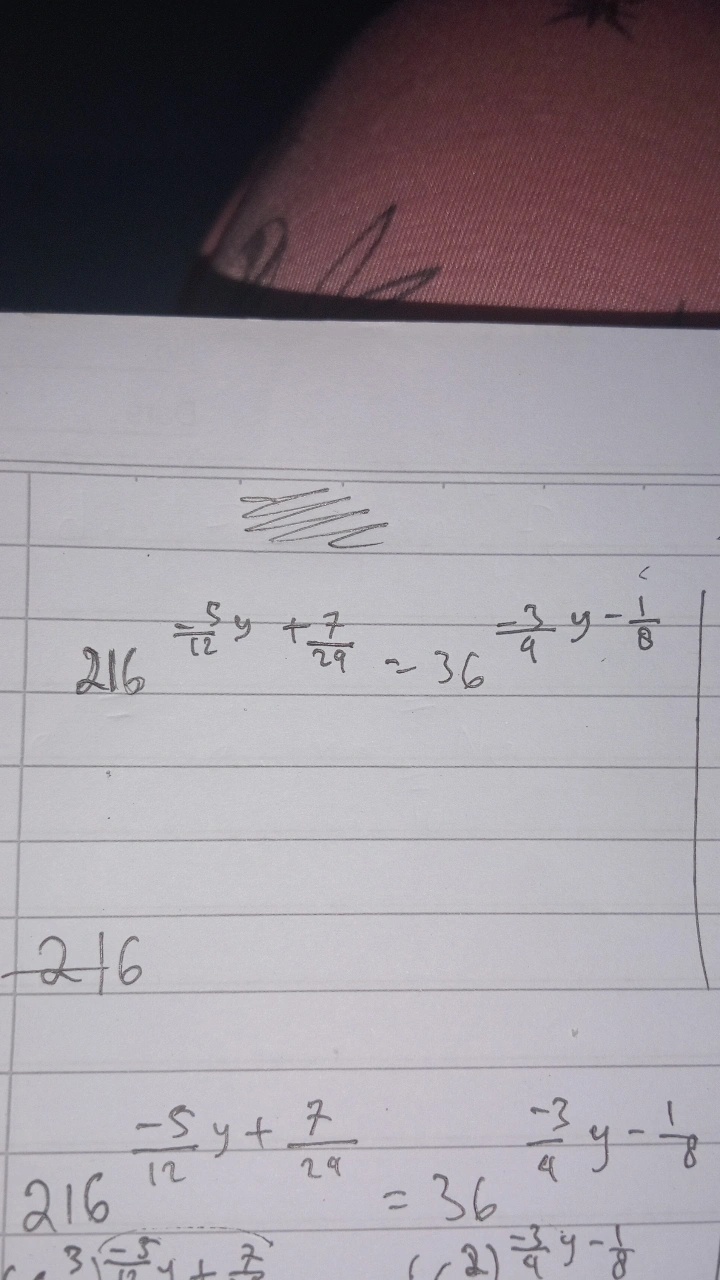 216^(-5/12 y + 7/24) = 36^(-3/4 y - 1/8)
216
216^(-5/12 y + 7/24) = 36^(-3/4 y - 1/8)
3) -5/12 y + 7 2) -3/4 y - 1/8